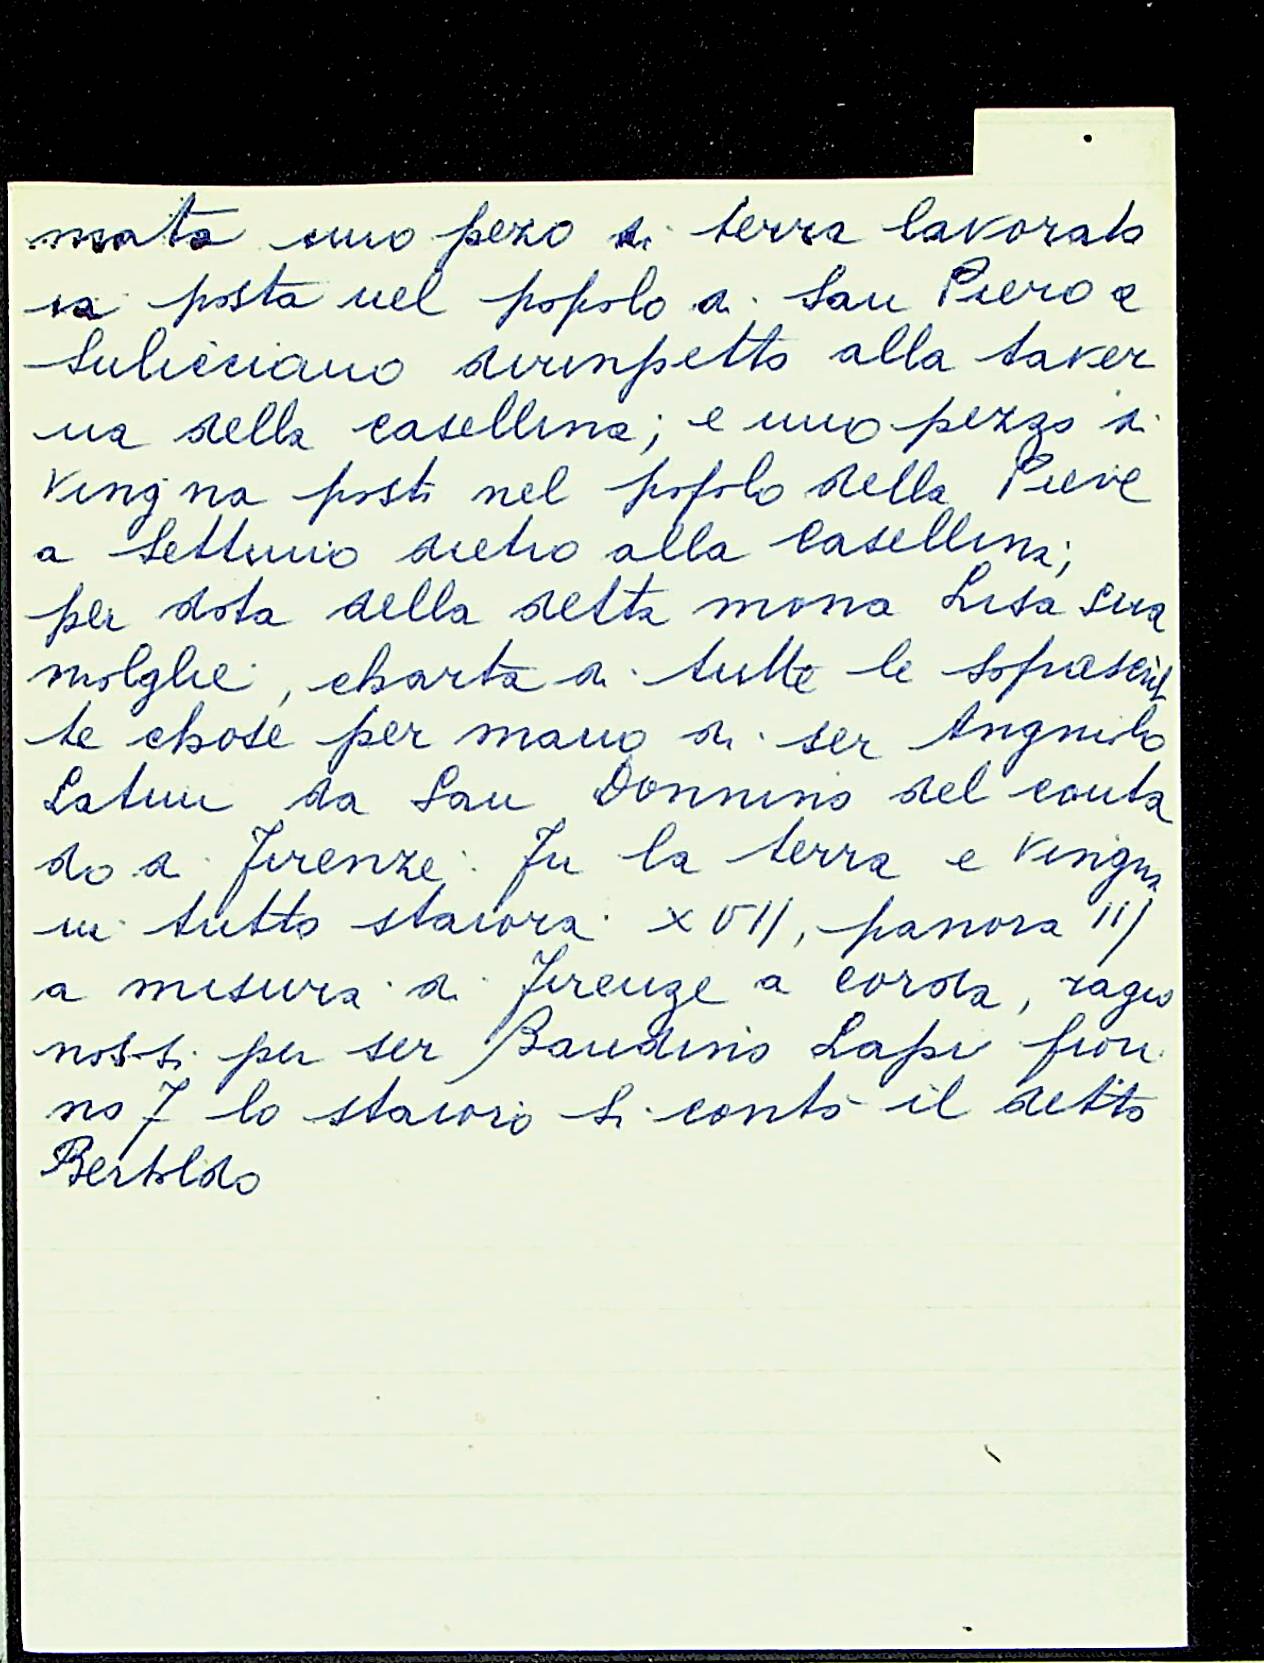 mata uno pezo di terra lavorato
ia posta nel popolo di San Piero a
Sulicciano dirinpetto alla taver
na della casellina; e uno pezzo di
vingna posti nel popolo della Pieve
a Settimo dietro alla Casellina;
per dota della detta mona Lisa sua
molglie, charta di tutte le soprascrit
te chose per mano di ser Angniolo
Latini da San Donnino del conta
do di Firenze. Fu la terra e vingna
in tutto staiora XVII, panora iij
a misura di Firenze a corda, ragio
nossi per ser Bandino Lapi fiori
no 7 lo staioro si contò il detto
Bertoldo